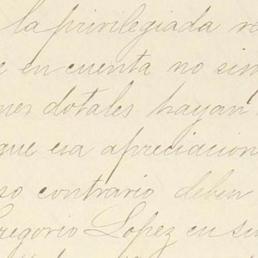 la privilegiada re
en cuenta no sim
dotales hayan
que esa apreciacion
so contrario deben
Gregorio Lopez en su